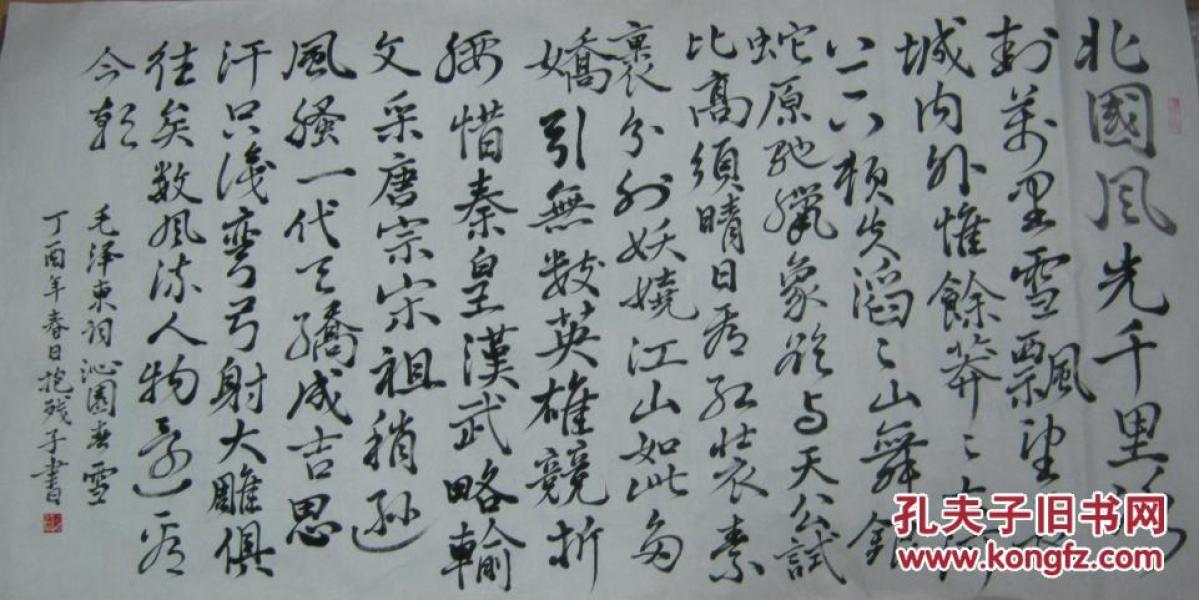 北國风光千里冰
封萬里雪飄望長
城内外惟餘莽〻大河
上下頓失滔〻山舞銀
蛇原馳臘象欲与天公試
比高須晴日看红装素
裹分外妖嬈江山如此多
嬌引無數英雄競折
腰惜秦皇漢武略輸
文采唐宗宋祖稍遜
風騷一代天驕成吉思
汗只識彎弓射大雕俱
往矣数风流人物还看
今朝
毛泽東词沁園春雪
丁酉年春日抱残子書
孔夫子旧书网
www.kongfz.com